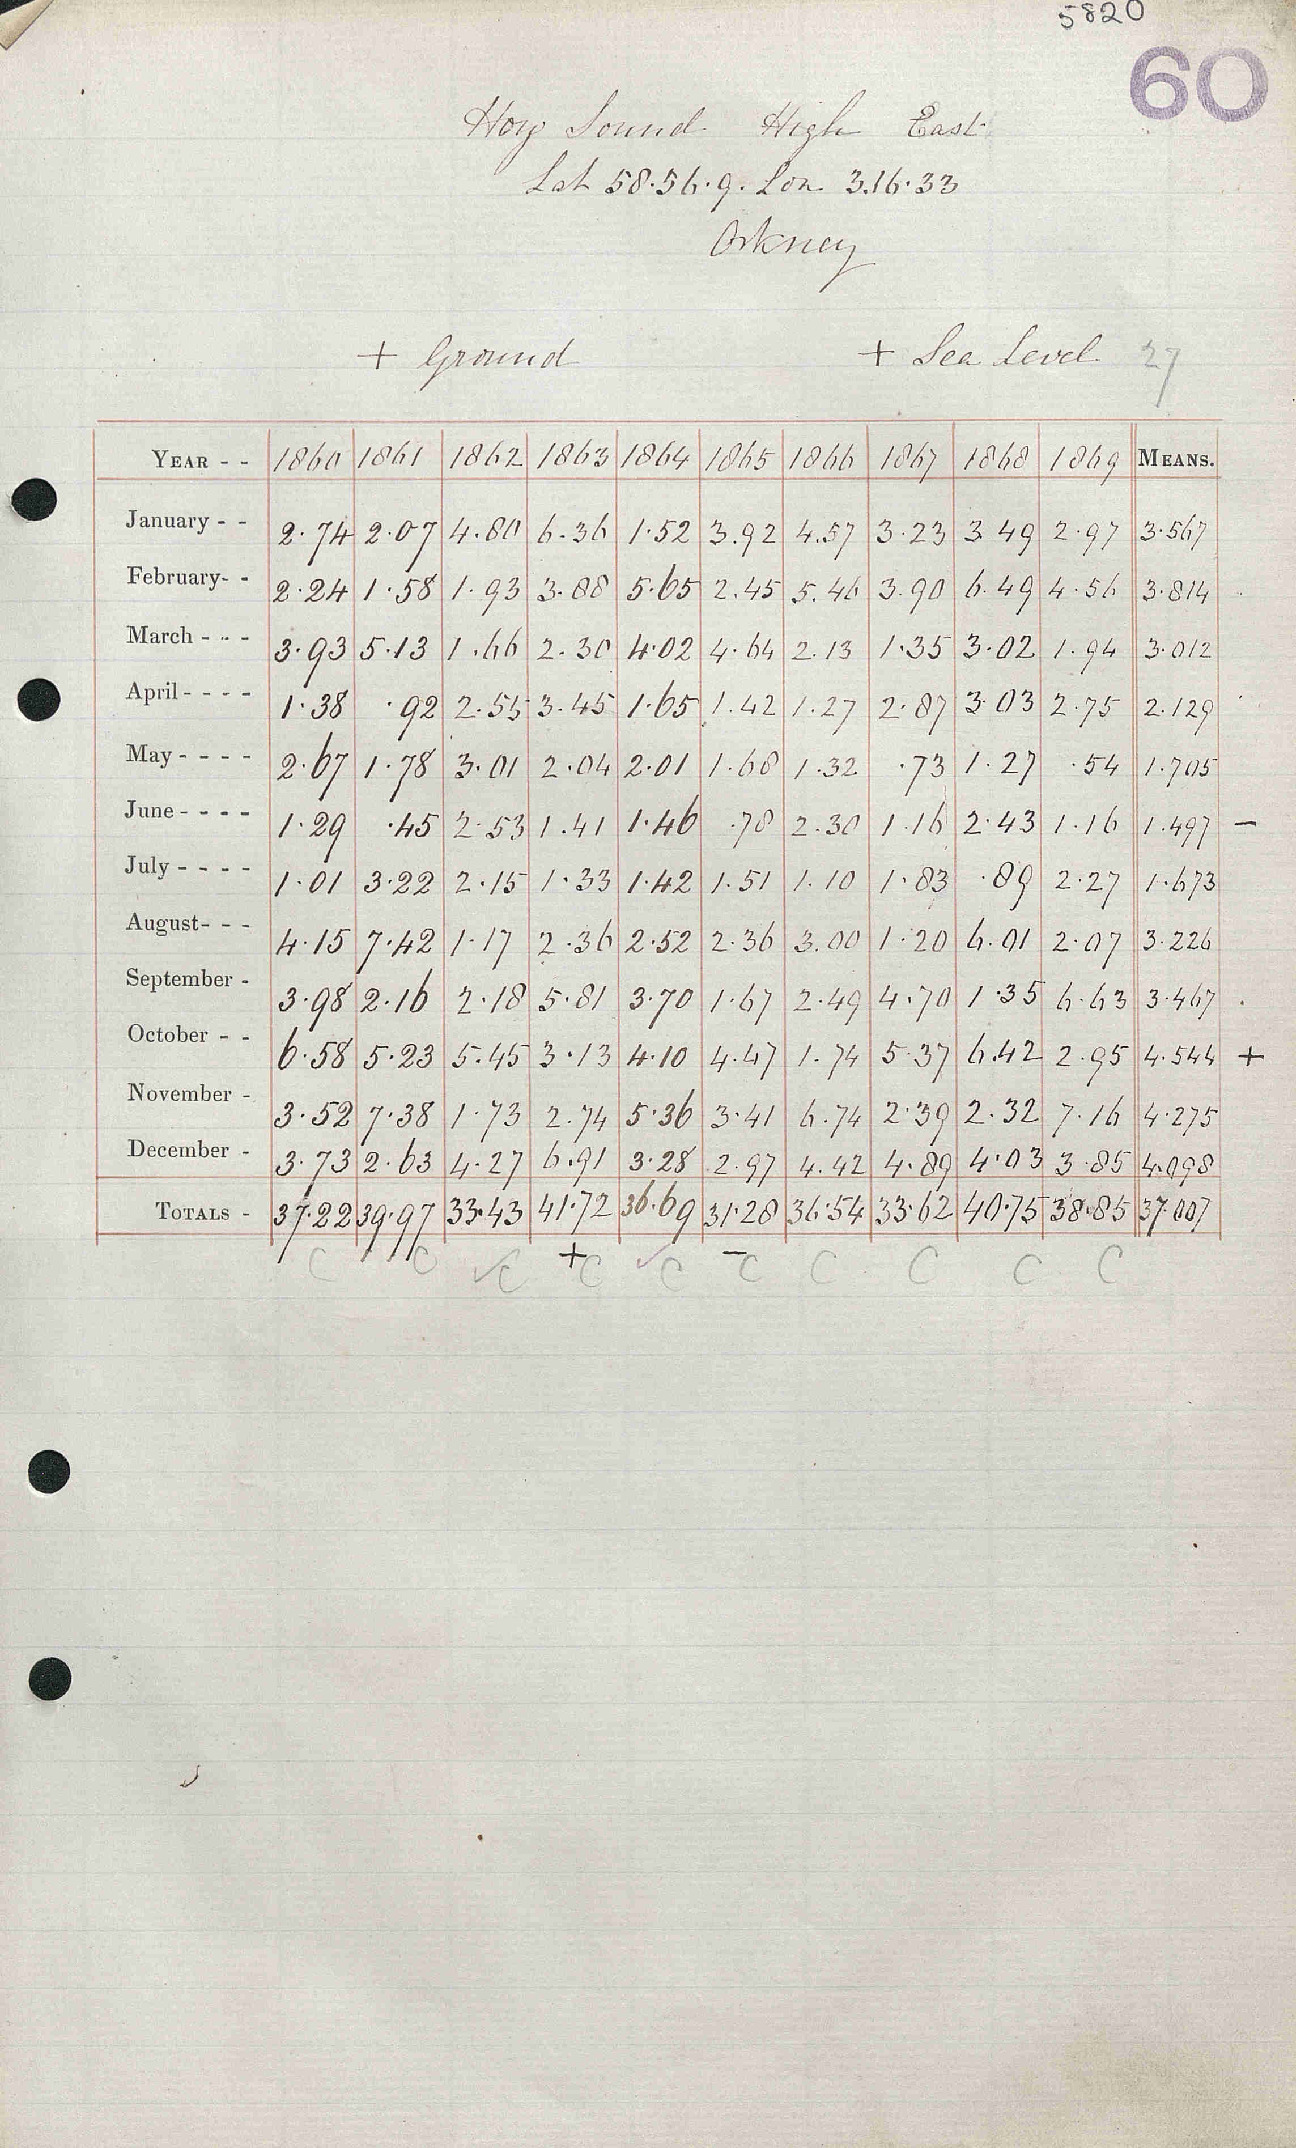 5820
60
Hoy Sound High East
Lat 58.56.9. Lon 3.16.33
Orkney
+ Ground + Sea Level 27
YEAR - - 1860 1861 1862 1863 1864 1865 1866 1867 1868 1869 MEANS.
January - - 2.74 2.07 4.80 6.36 1.52 3.92 4.57 3.23 3.49 2.97 3.567
February- - 2.24 1.58 1.93 3.88 5.65 2.45 5.46 3.90 6.49 4.56 3.814
March - - - 3.93 5.13 1.66 2.30 4.02 4.64 2.13 1.35 3.02 1.94 3.012
April - - - - 1.38 .92 2.55 3.45 1.65 1.42 1.27 2.87 3.03 2.75 2.129
May - - - - 2.67 1.78 3.01 2.04 2.01 1.68 1.32 .73 1.27 .54 1.705
June - - - - 1.29 .45 2.53 1.41 1.46 .78 2.30 1.16 2.43 1.16 1.497 —
July - - - - 1.01 3.22 2.15 1.33 1.42 1.51 1.10 1.83 .89 2.27 1.673
August- - - 4.15 7.42 1.17 2.36 2.52 2.36 3.00 1.20 6.01 2.07 3.226
September - 3.98 2.16 2.18 5.81 3.70 1.67 2.49 4.70 1.35 6.63 3.467
October - - 6.58 5.23 5.45 3.13 4.10 4.47 1.74 5.37 6.42 2.95 4.544 +
November - 3.52 7.38 1.73 2.74 5.36 3.41 6.74 2.39 2.32 7.16 4.275
December - 3.73 2.63 4.27 6.91 3.28 2.97 4.42 4.89 4.03 3.85 4.098
TOTALS - 37.22 39.97 33.43 41.72 36.69 31.28 36.54 33.62 40.75 38.85 37.007
C C ✓C +C ✓C —C C C C C